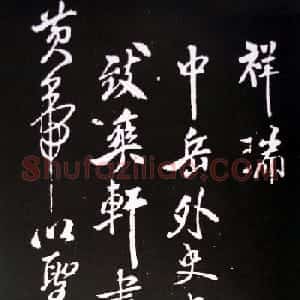 祥瑞
中岳外史
致爽軒書
黄䒑以聖
Shufaziliao.com